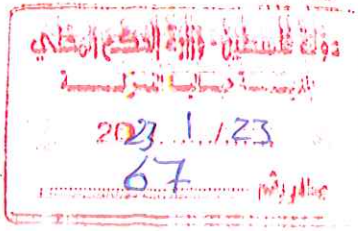 دولة فلسطين - وزارة الحكم المحلي
2023 / 1 / 23
صادر رقم 67